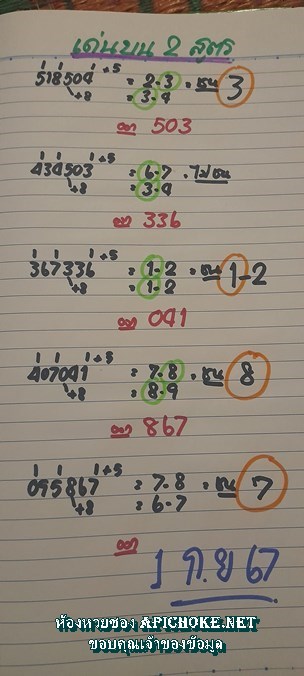 เด่นบน 2 สูตร
518504 +5 = 2-3 = ชน 3
+8 = 3-4
ออก 503
434503 +5 = 6-7 = ไม่ชน
+8 = 3-4
ออก 336
367336 +5 = 1-2 = ชน 1-2
+8 = 1-2
ออก 041
407041 +5 = 7-8 = ชน 8
+8 = 8-9
ออก 867
095867 +5 = 7-8 = ชน 7
+8 = 6-7
ออก
1 ก.ย 67
ห้องหวยซอง APICHOKE.NET
ขอบคุณเจ้าของข้อมูล